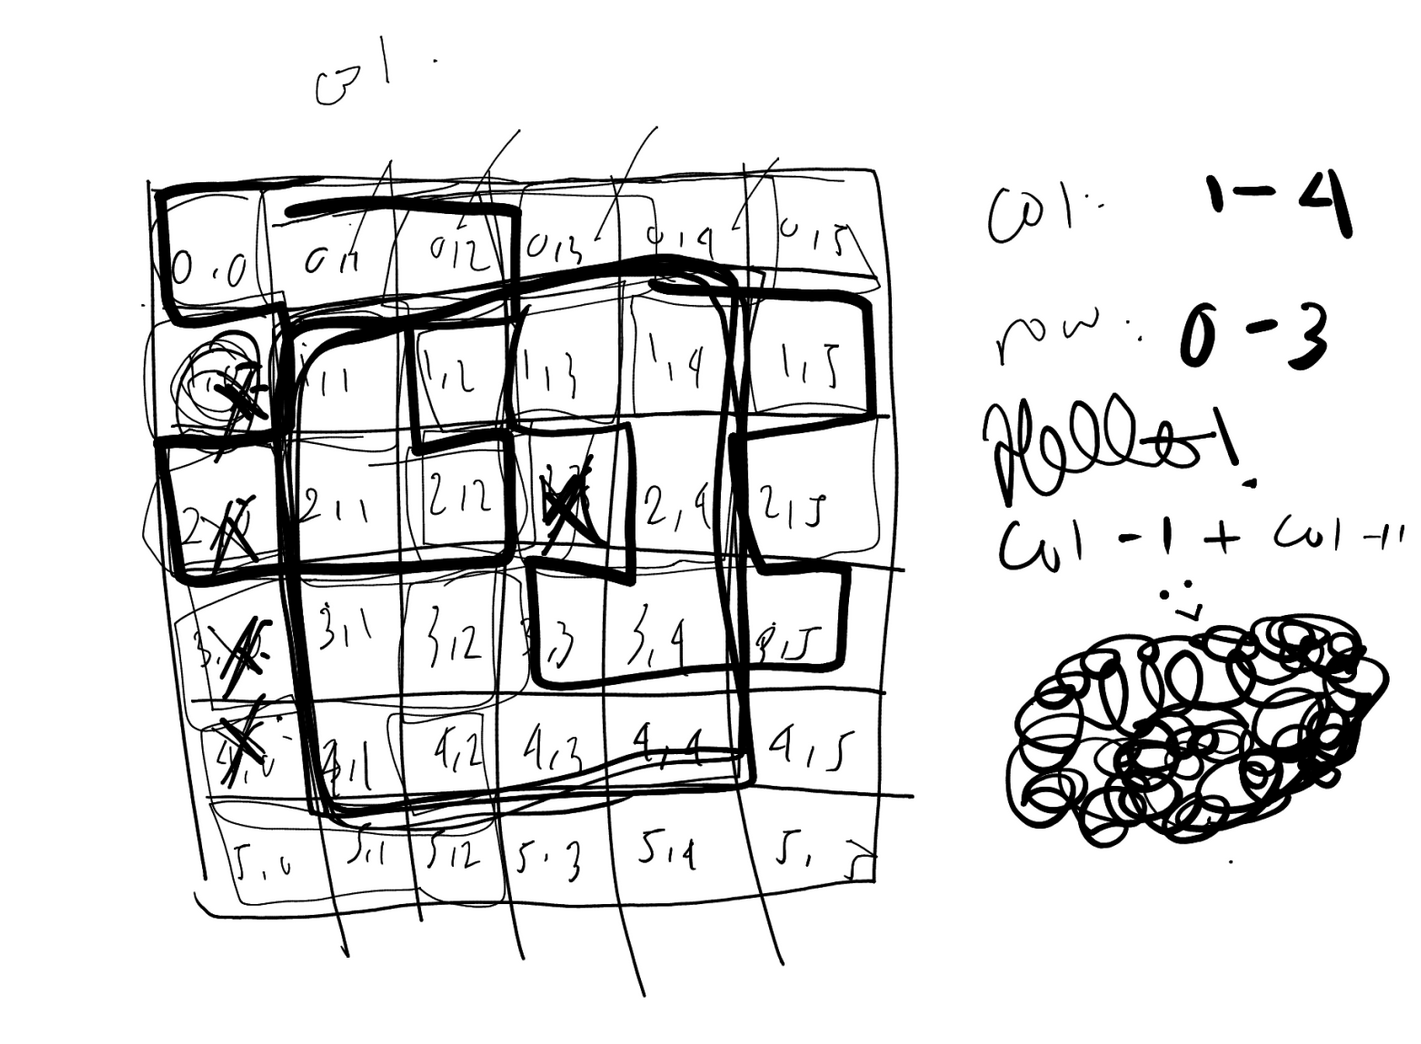 col.
0,0 0,1 0,2 0,3 0,4 0,5
1,1 1,2 1,3 1,4 1,5
2,1 2,2 2,4 2,5
3,1 3,2 3,3 3,4 3,5
4,0 4,1 4,2 4,3 4,4 4,5
5,0 5,1 5,2 5,3 5,4 5,5
col: 1-4
row: 0-3
Hello!
col -1 + col -11